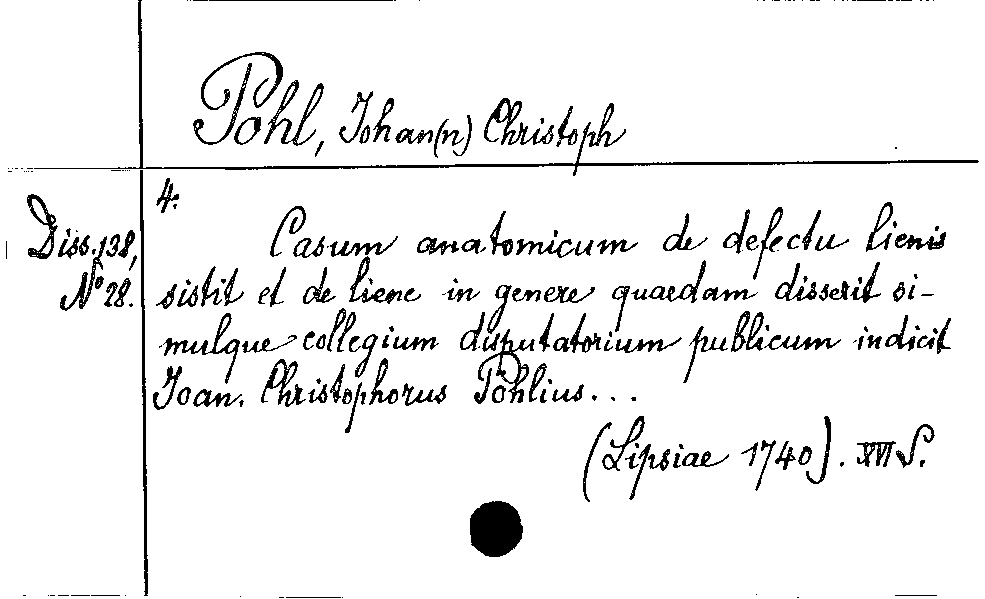 Pohl, Johan(n) Christoph
4.
Diss. 138,
No 28.
Casum anatomicum de defectu lienis
sistit et de liene in genere quaedam disserit si-
mulque collegium disputatorium publicum indicit
Joan. Christophorus Pohlius...
(Lipsiae 1740). XVI S.